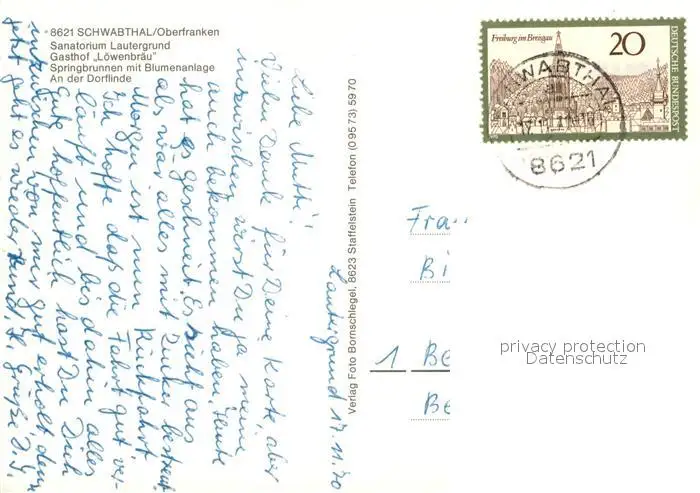 8621 SCHWABTHAL/Oberfranken
Sanatorium Lautergrund
Gasthof „Löwenbräu"
Springbrunnen mit Blumenanlage
An der Dorflinde
Freiburg im Breisgau
20
DEUTSCHE BUNDESPOST
SCHWABTHAL
8621
Lautergrund 17.11.70
Liebe Mutti!
Vielen Dank für Deine Karte, aber
inzwischen wirst Du ja meine
auch bekommen haben. Heute
hat es geschneit. Es sieht aus
als wär alles mit Zucker bestreut
Morgen ist nun Rückfahrt
Ich hoffe daß die Fahrt gut ver-
läuft und bis dahin alles
Gute hoffentlich hast Du Dich
inzwischen von mir gut erholt, denn
jetzt geht es wieder rund, Hz. Grüße
Verlag Foto Bornschlegel, 8623 Staffelstein Telefon (0 95 73) 59 70
Frau
Bi
1 Be
Be
privacy protection
Datenschutz